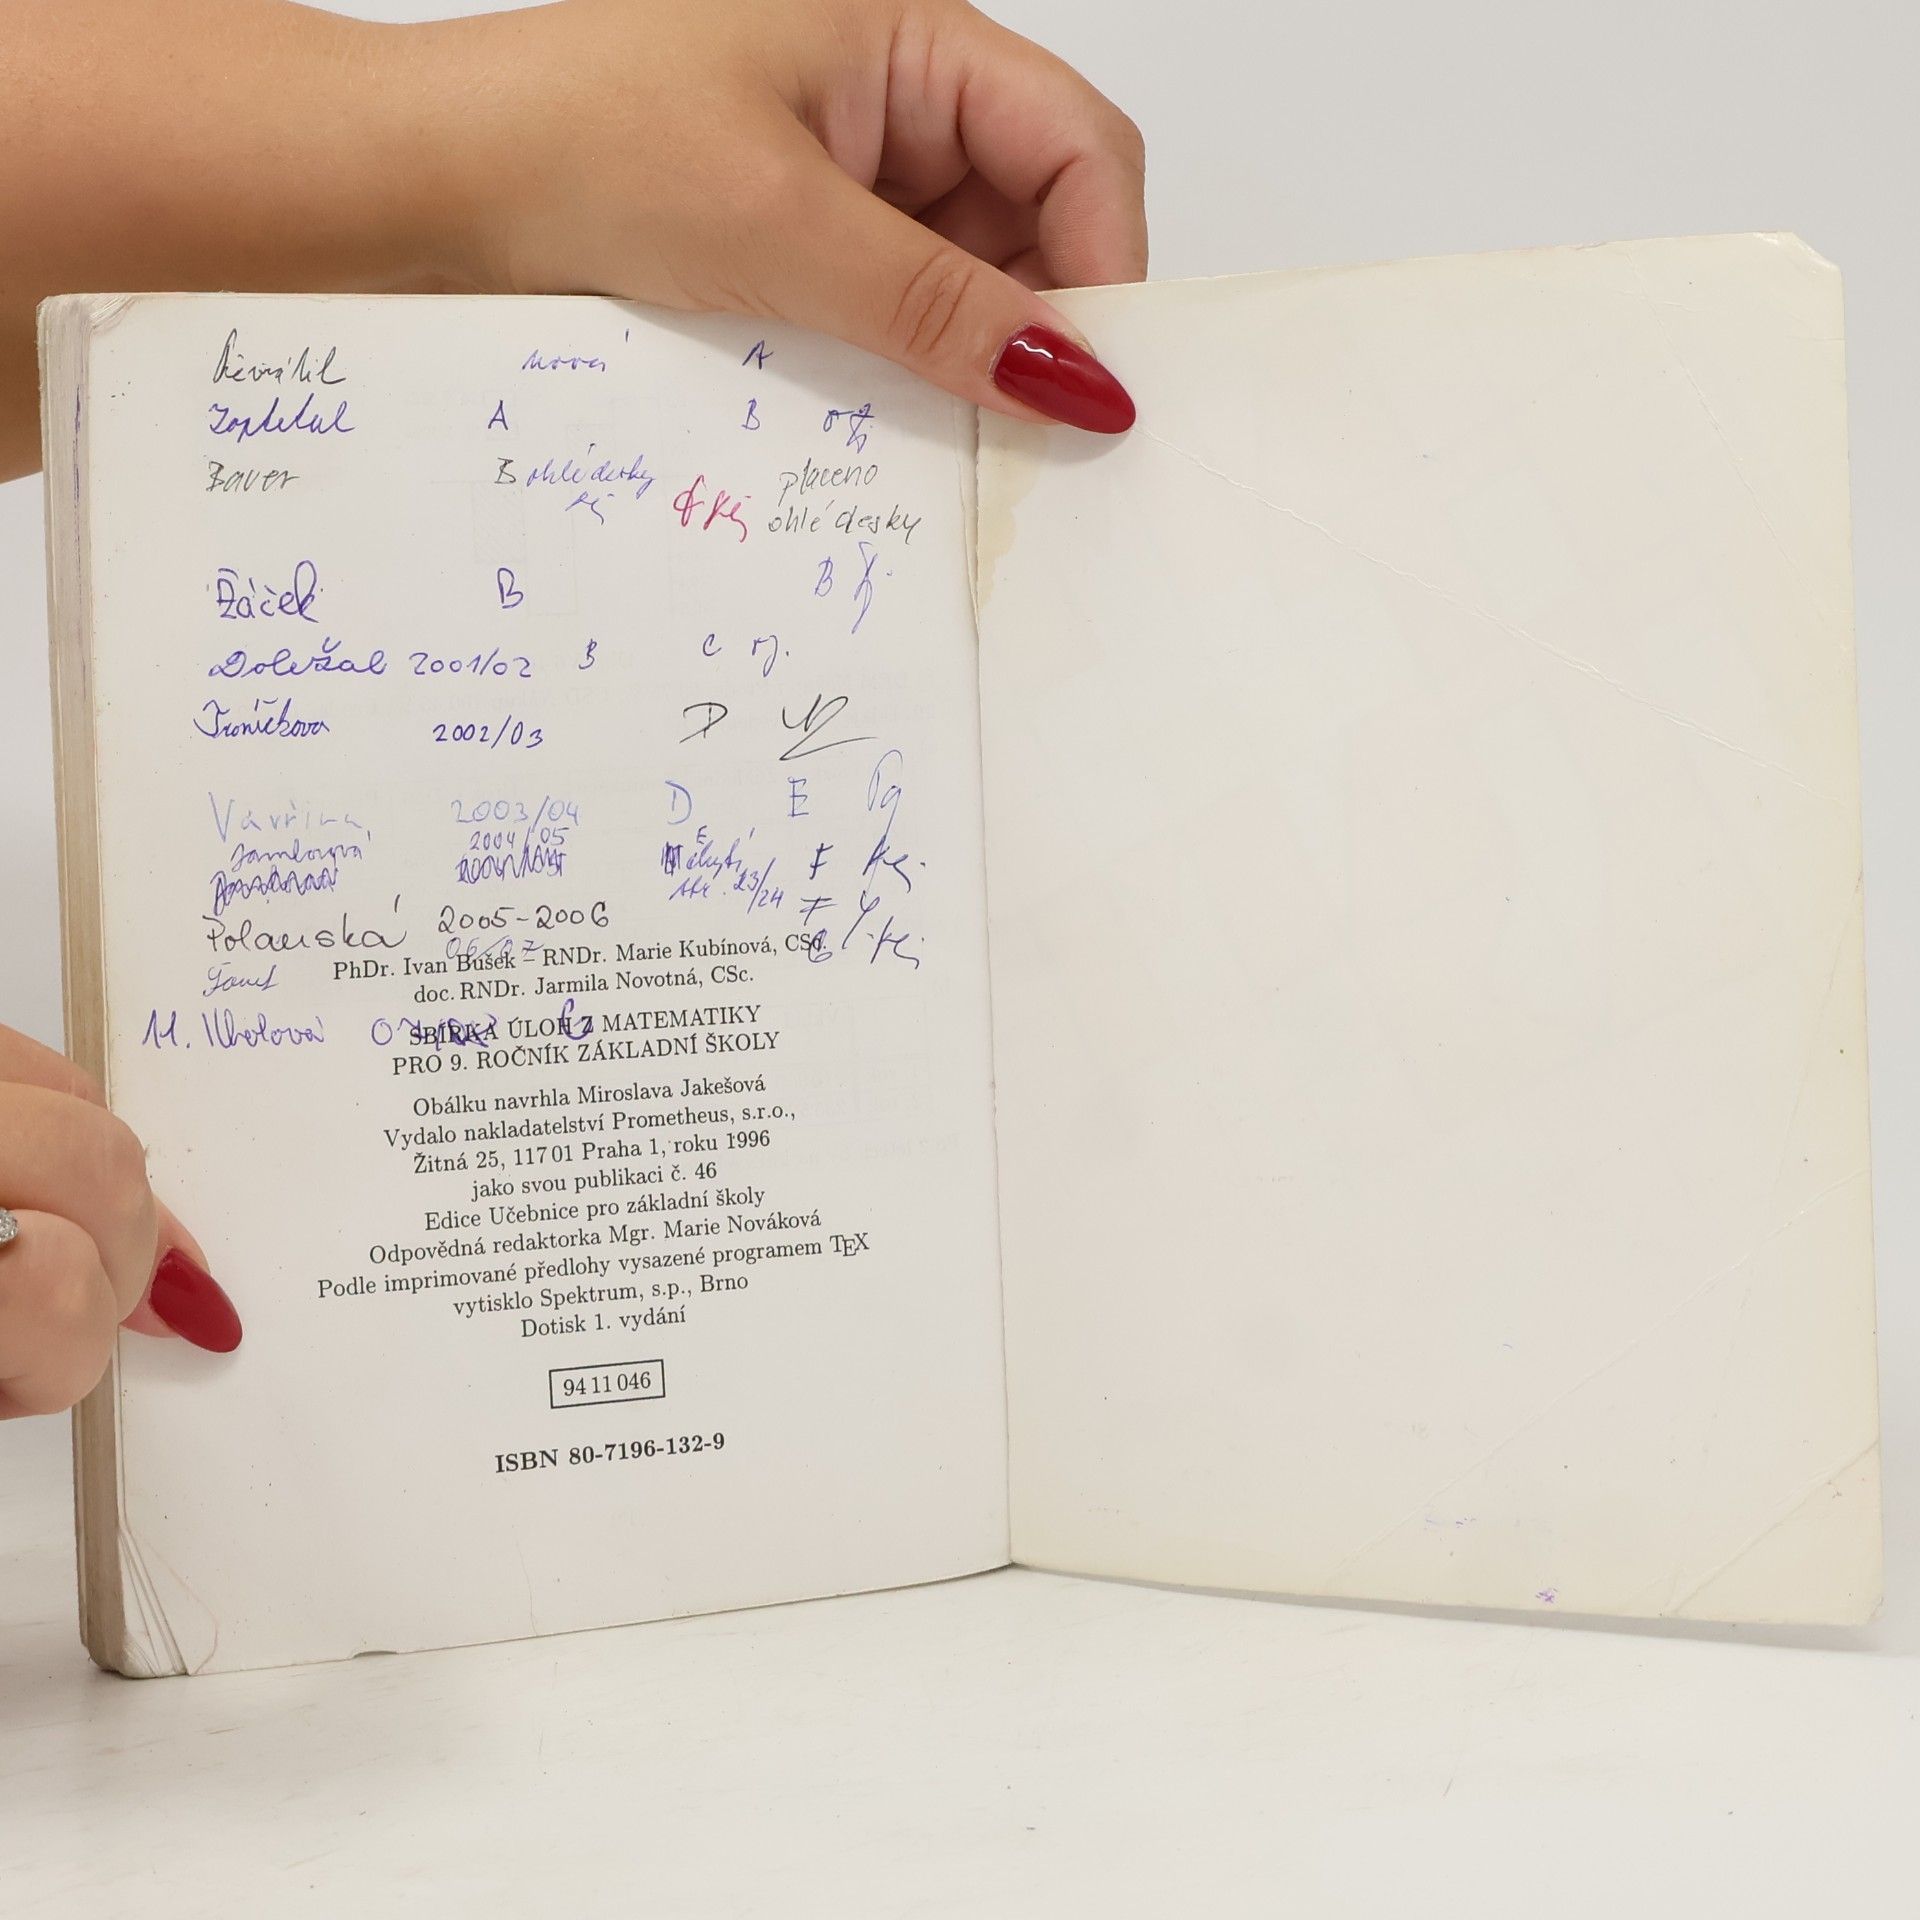 nová A
A B
Bauer B ohlé desky placeno
ohlé desky
Žáček B B
Doležal 2001/02 B C
2002/03 D
Vavřina 2003/04 D E
2004/05 E
str. 23/24 F
Polanská 2005-2006 F
06-07
PhDr. Ivan Bušek – RNDr. Marie Kubínová, CSc.
doc. RNDr. Jarmila Novotná, CSc.
11.
SBÍRKA ÚLOH Z MATEMATIKY
PRO 9. ROČNÍK ZÁKLADNÍ ŠKOLY
Obálku navrhla Miroslava Jakešová
Vydalo nakladatelství Prometheus, s.r.o.,
Žitná 25, 117 01 Praha 1, roku 1996
jako svou publikaci č. 46
Edice Učebnice pro základní školy
Odpovědná redaktorka Mgr. Marie Nováková
Podle imprimované předlohy vysazené programem TEX
vytisklo Spektrum, s.p., Brno
Dotisk 1. vydání
94 11 046
ISBN 80-7196-132-9